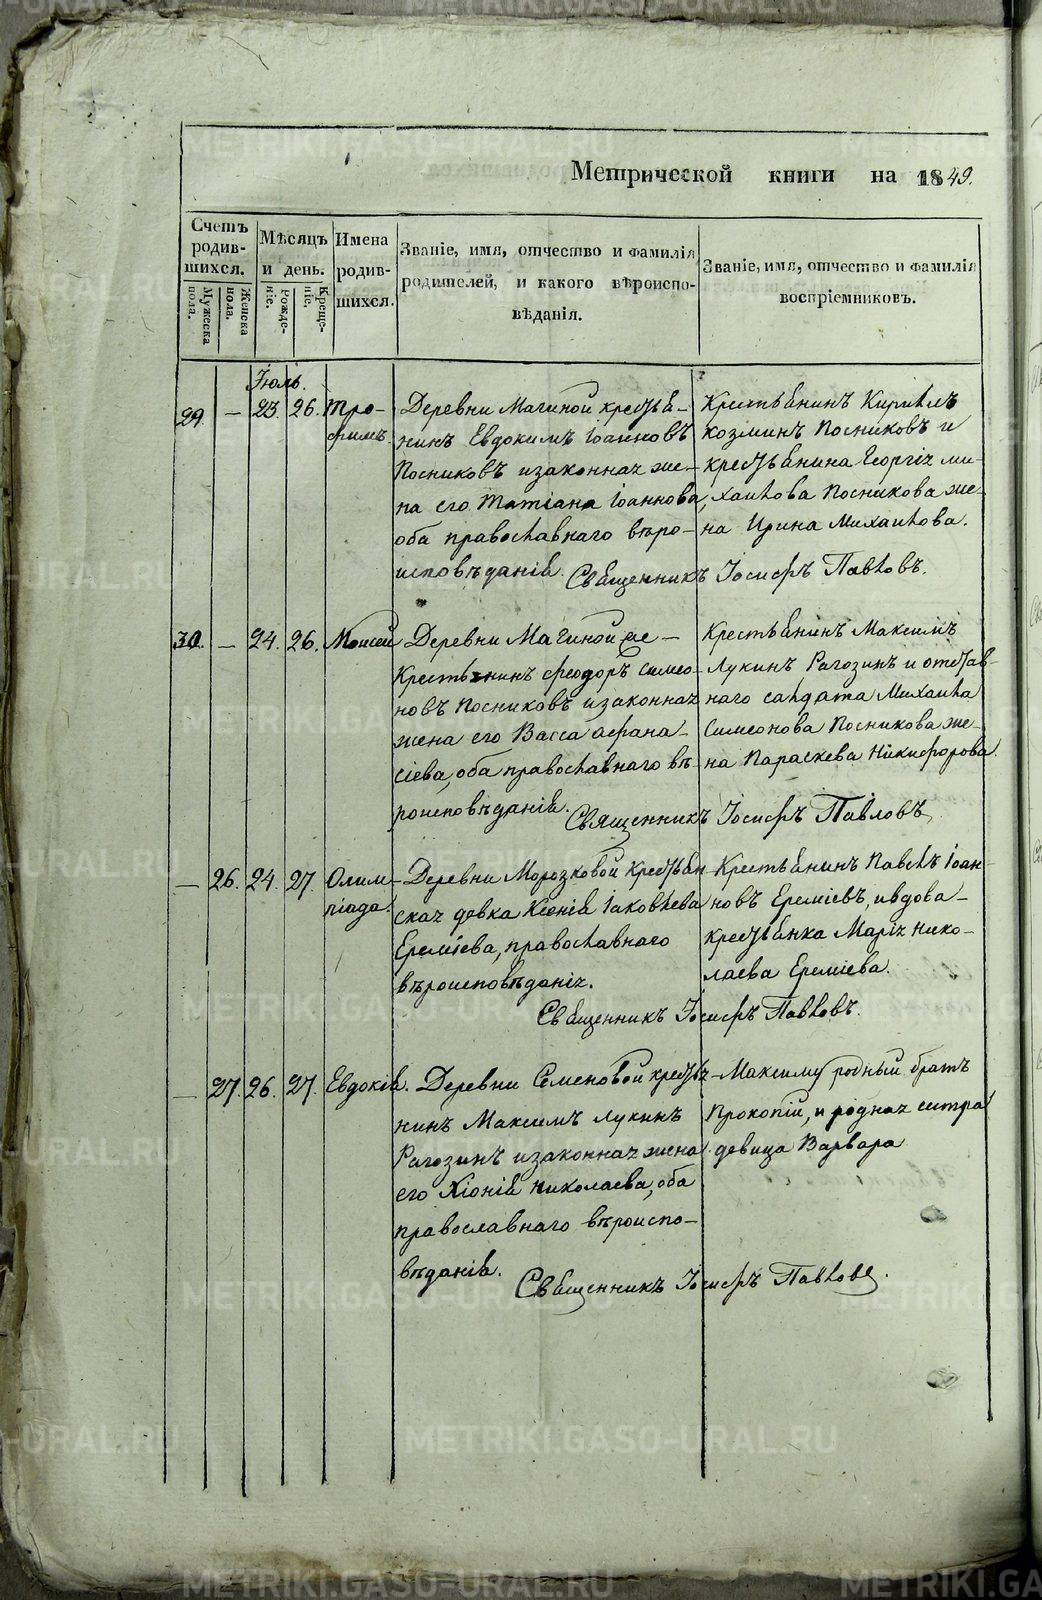 Метрической книги на 1849.
Счетъ родив-шихся.
Мужеска пола.
Женска пола.
Мѣсяцъ и день.
Рожде-ніе.
Креще-ніе.
Имена родив-шихся.
Званіе, имя, отчество и фамилія
родителей, и какого вѣроиспо-
вѣданія.
Званіе, имя, отчество и фамилія
воспріемниковъ.
Іюль.
29. — 23. 26. Тро-
фимъ.
Деревни Мачиной крестья-
нинъ Евдокимъ Іоанновъ
Посниковъ и законная же-
на его Татіана Іоаннова,
оба православнаго вѣро-
исповѣданія.
Крестьянинъ Кириллъ
Козминъ Посниковъ и
крестьянина Георгія Ми-
хаилова Посникова же-
на Ирина Михаилова.
Священникъ Іосифъ Павловъ.
30. — 24. 26. Моисей
Деревни Мачиной же —
Крестьянинъ Феодоръ Симео-
новъ Посниковъ и законная
жена его Васса Афана-
сіева, оба православнаго вѣ-
роисповѣданія.
Крестьянинъ Максимъ
Лукинъ Рагозинъ и отстав-
наго салдата Михаила
Симеонова Посникова же-
на Параскева Никифорова.
Священникъ Іосифъ Павловъ.
— 26. 24. 27. Олим-
піада.
Деревни Морозковой Крестьян-
ская девка Ксенія Іаковлева
Ереміева, православнаго
вѣроисповѣданія.
Крестьянинъ Павелъ Іоан-
новъ Ереміевъ, и вдова —
крестьянка Марія Нико-
лаева Ереміева.
Священникъ Іосифъ Павловъ.
— 27. 26. 27. Евдокія.
Деревни Семеновой кресть
нинъ Максимъ Лукинъ
Рагозинъ и законная жена
его Хіонія Николаева, оба
православнаго вѣроиспо-
вѣданія.
Максиму родный братъ
Прокопій, и родная систра
девица Варвара
Священникъ Іосифъ Павловъ.
METRIKI.GASO-URAL.RU